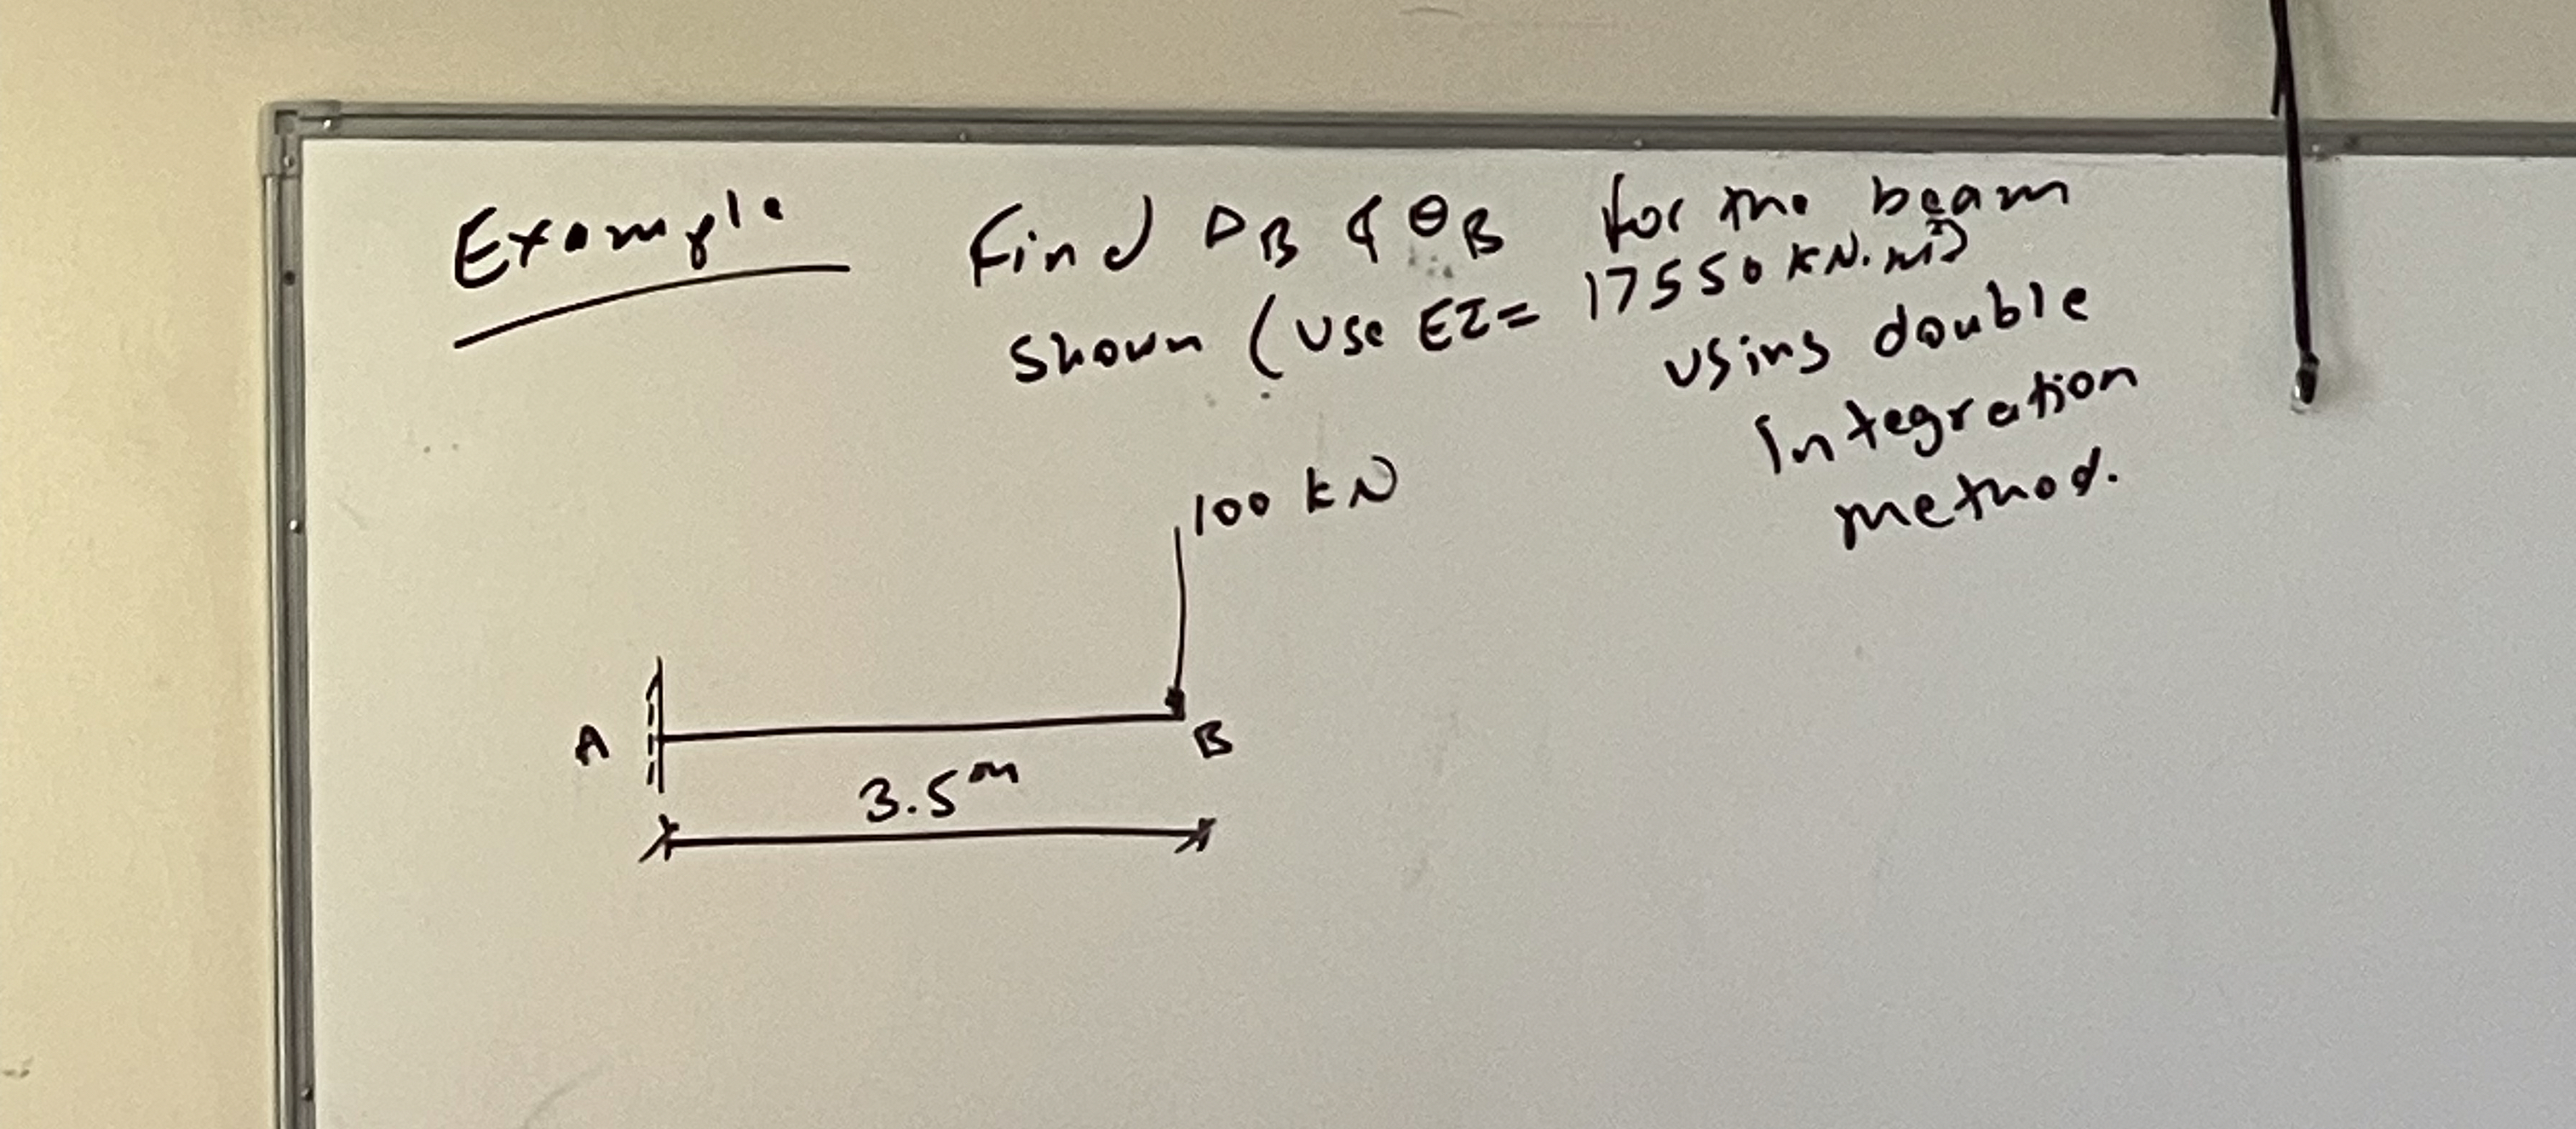 Example Find ΔB & θB for the beam
shown (use EI = 17550 kN.m²)
using double
Integration
method.
100 kN
A
B
3.5 m